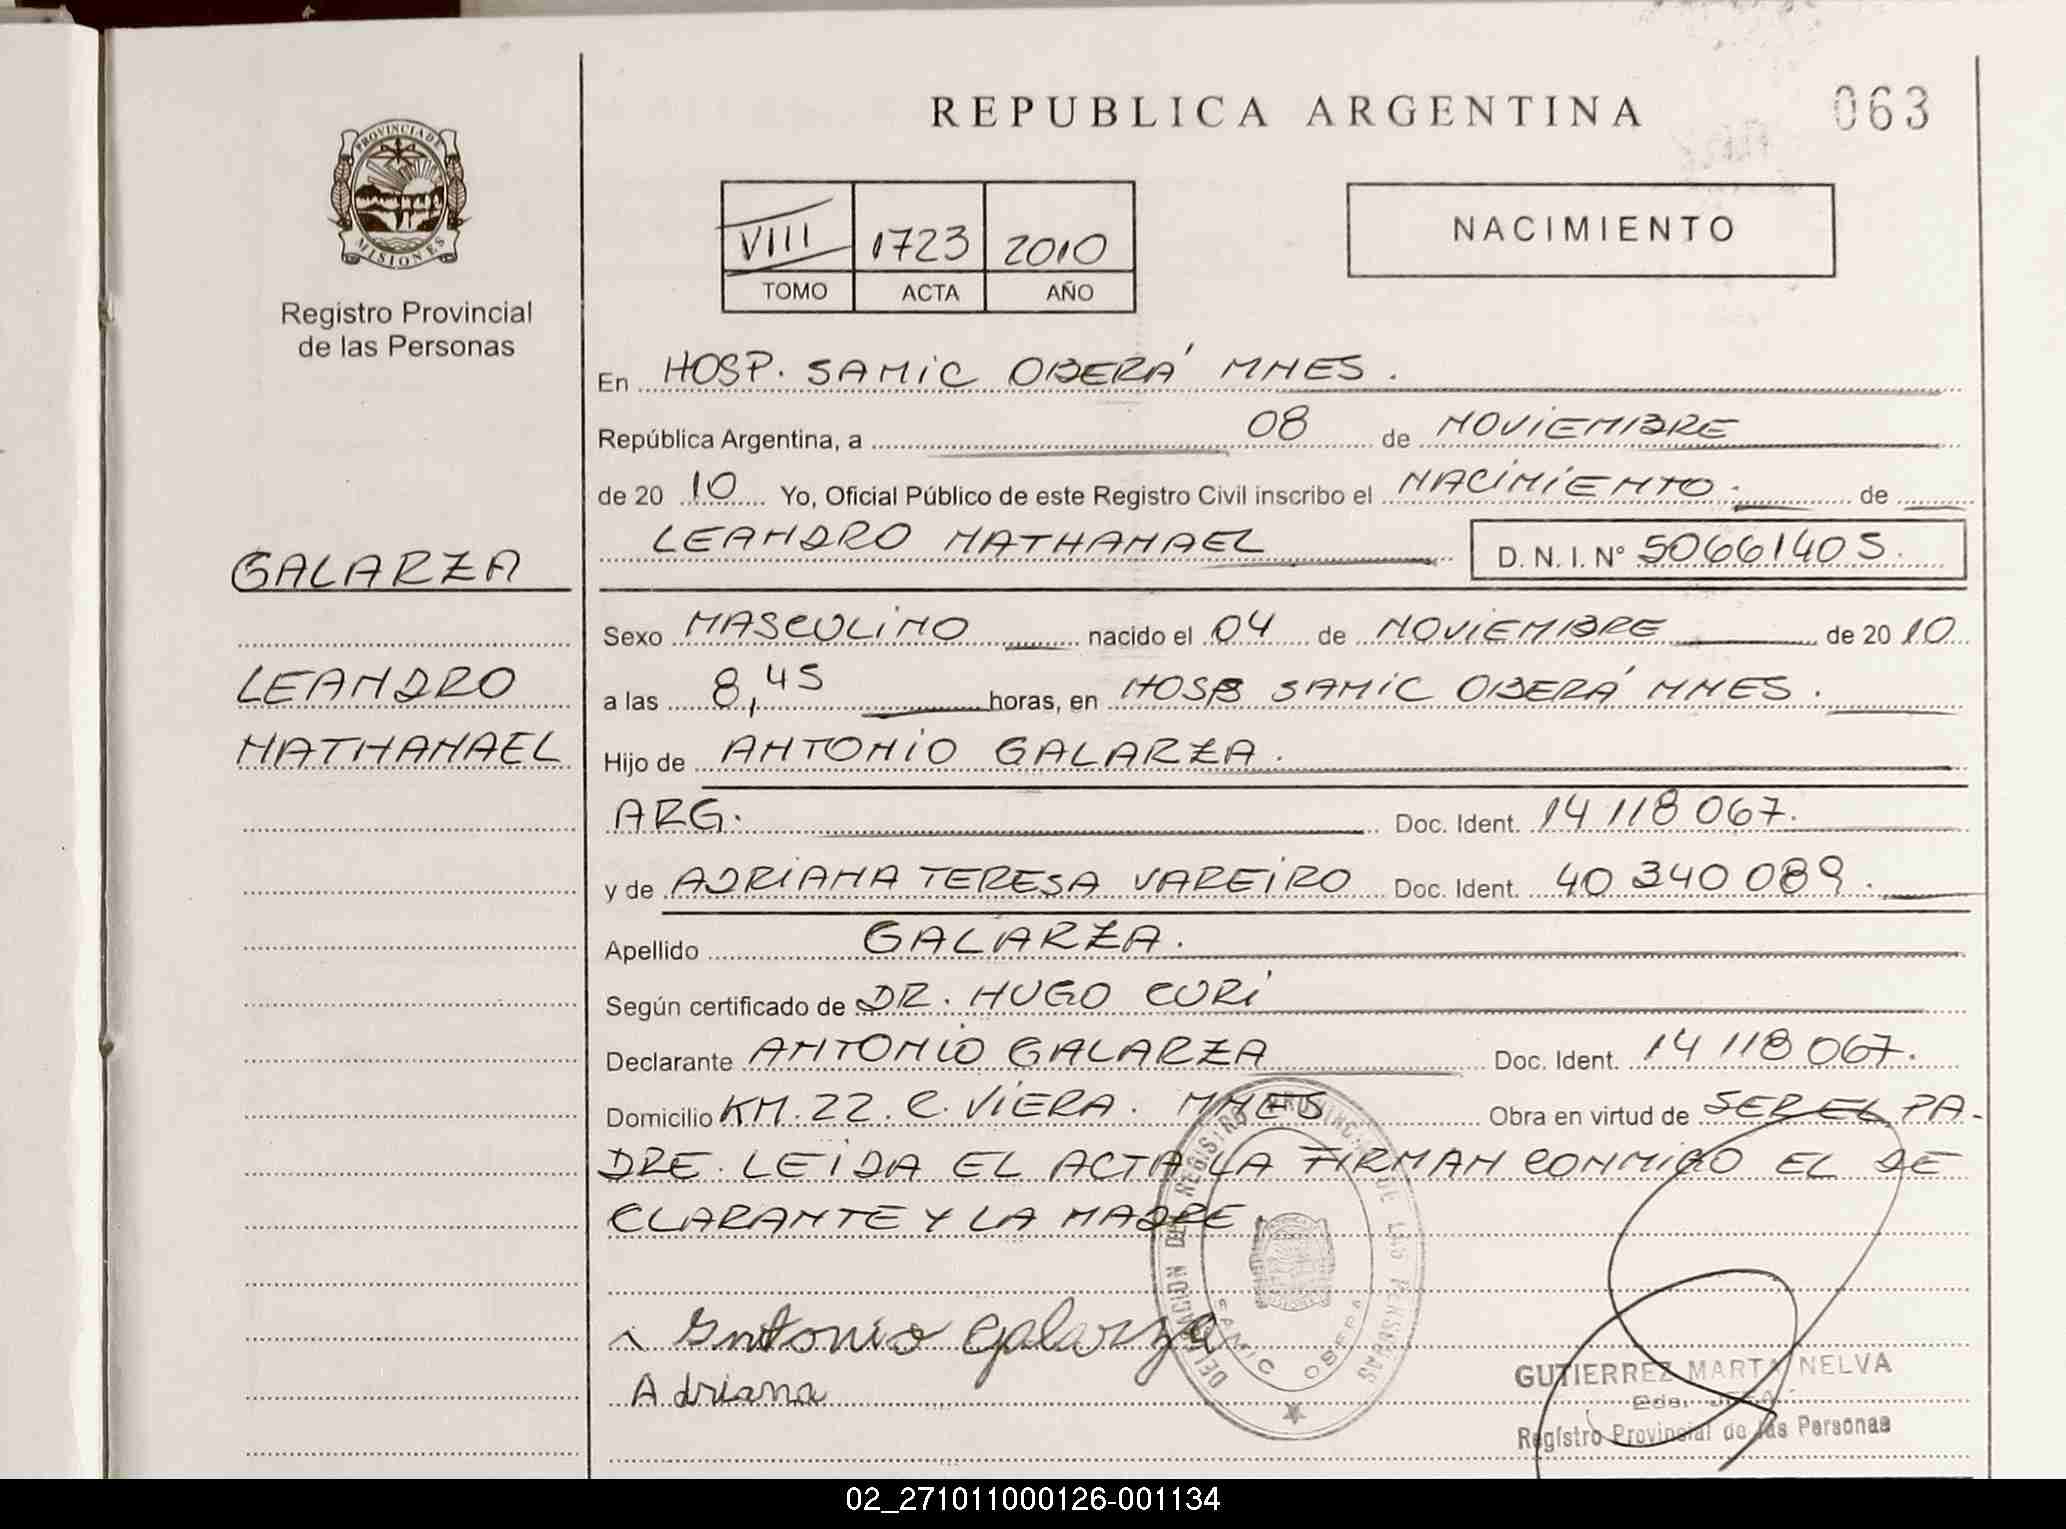 REPUBLICA ARGENTINA
063
PROVINCIA DE
MISIONES
Registro Provincial
de las Personas
VIII 1723 2010
TOMO ACTA AÑO
NACIMIENTO
En HOSP. SAMIC OBERÁ MNES.
República Argentina, a 08 de NOVIEMBRE
de 20 10 Yo, Oficial Público de este Registro Civil inscribo el NACIMIENTO. de
LEANDRO NATHANAEL D. N. I. Nº 50661405.
GALARZA
LEANDRO
NATHANAEL
Sexo MASCULINO nacido el 04 de NOVIEMBRE de 20 10
a las 8,45 horas, en HOSP SAMIC OBERÁ MNES.
Hijo de ANTONIO GALARZA.
ARG. Doc. Ident. 14 118 067.
y de ADRIANA TERESA VAREIRO Doc. Ident. 40 340 089.
Apellido GALARZA.
Según certificado de DR. HUGO CURI
Declarante ANTONIO GALARZA Doc. Ident. 14 118 067.
Domicilio KM. 22. C. VIERA. MNES Obra en virtud de SER EL PA-
DRE. LEIDA EL ACTA LA FIRMAN CONMIGO EL DE
CLARANTE Y LA MADRE.
DELEGACION DEL REGISTRO PROVINCIAL DE LAS PERSONAS
SAMIC OBERA
Antonio Galarza
Adriana
GUTIERREZ MARTA NELVA
Registro Provincial de las Personas
02_271011000126-001134